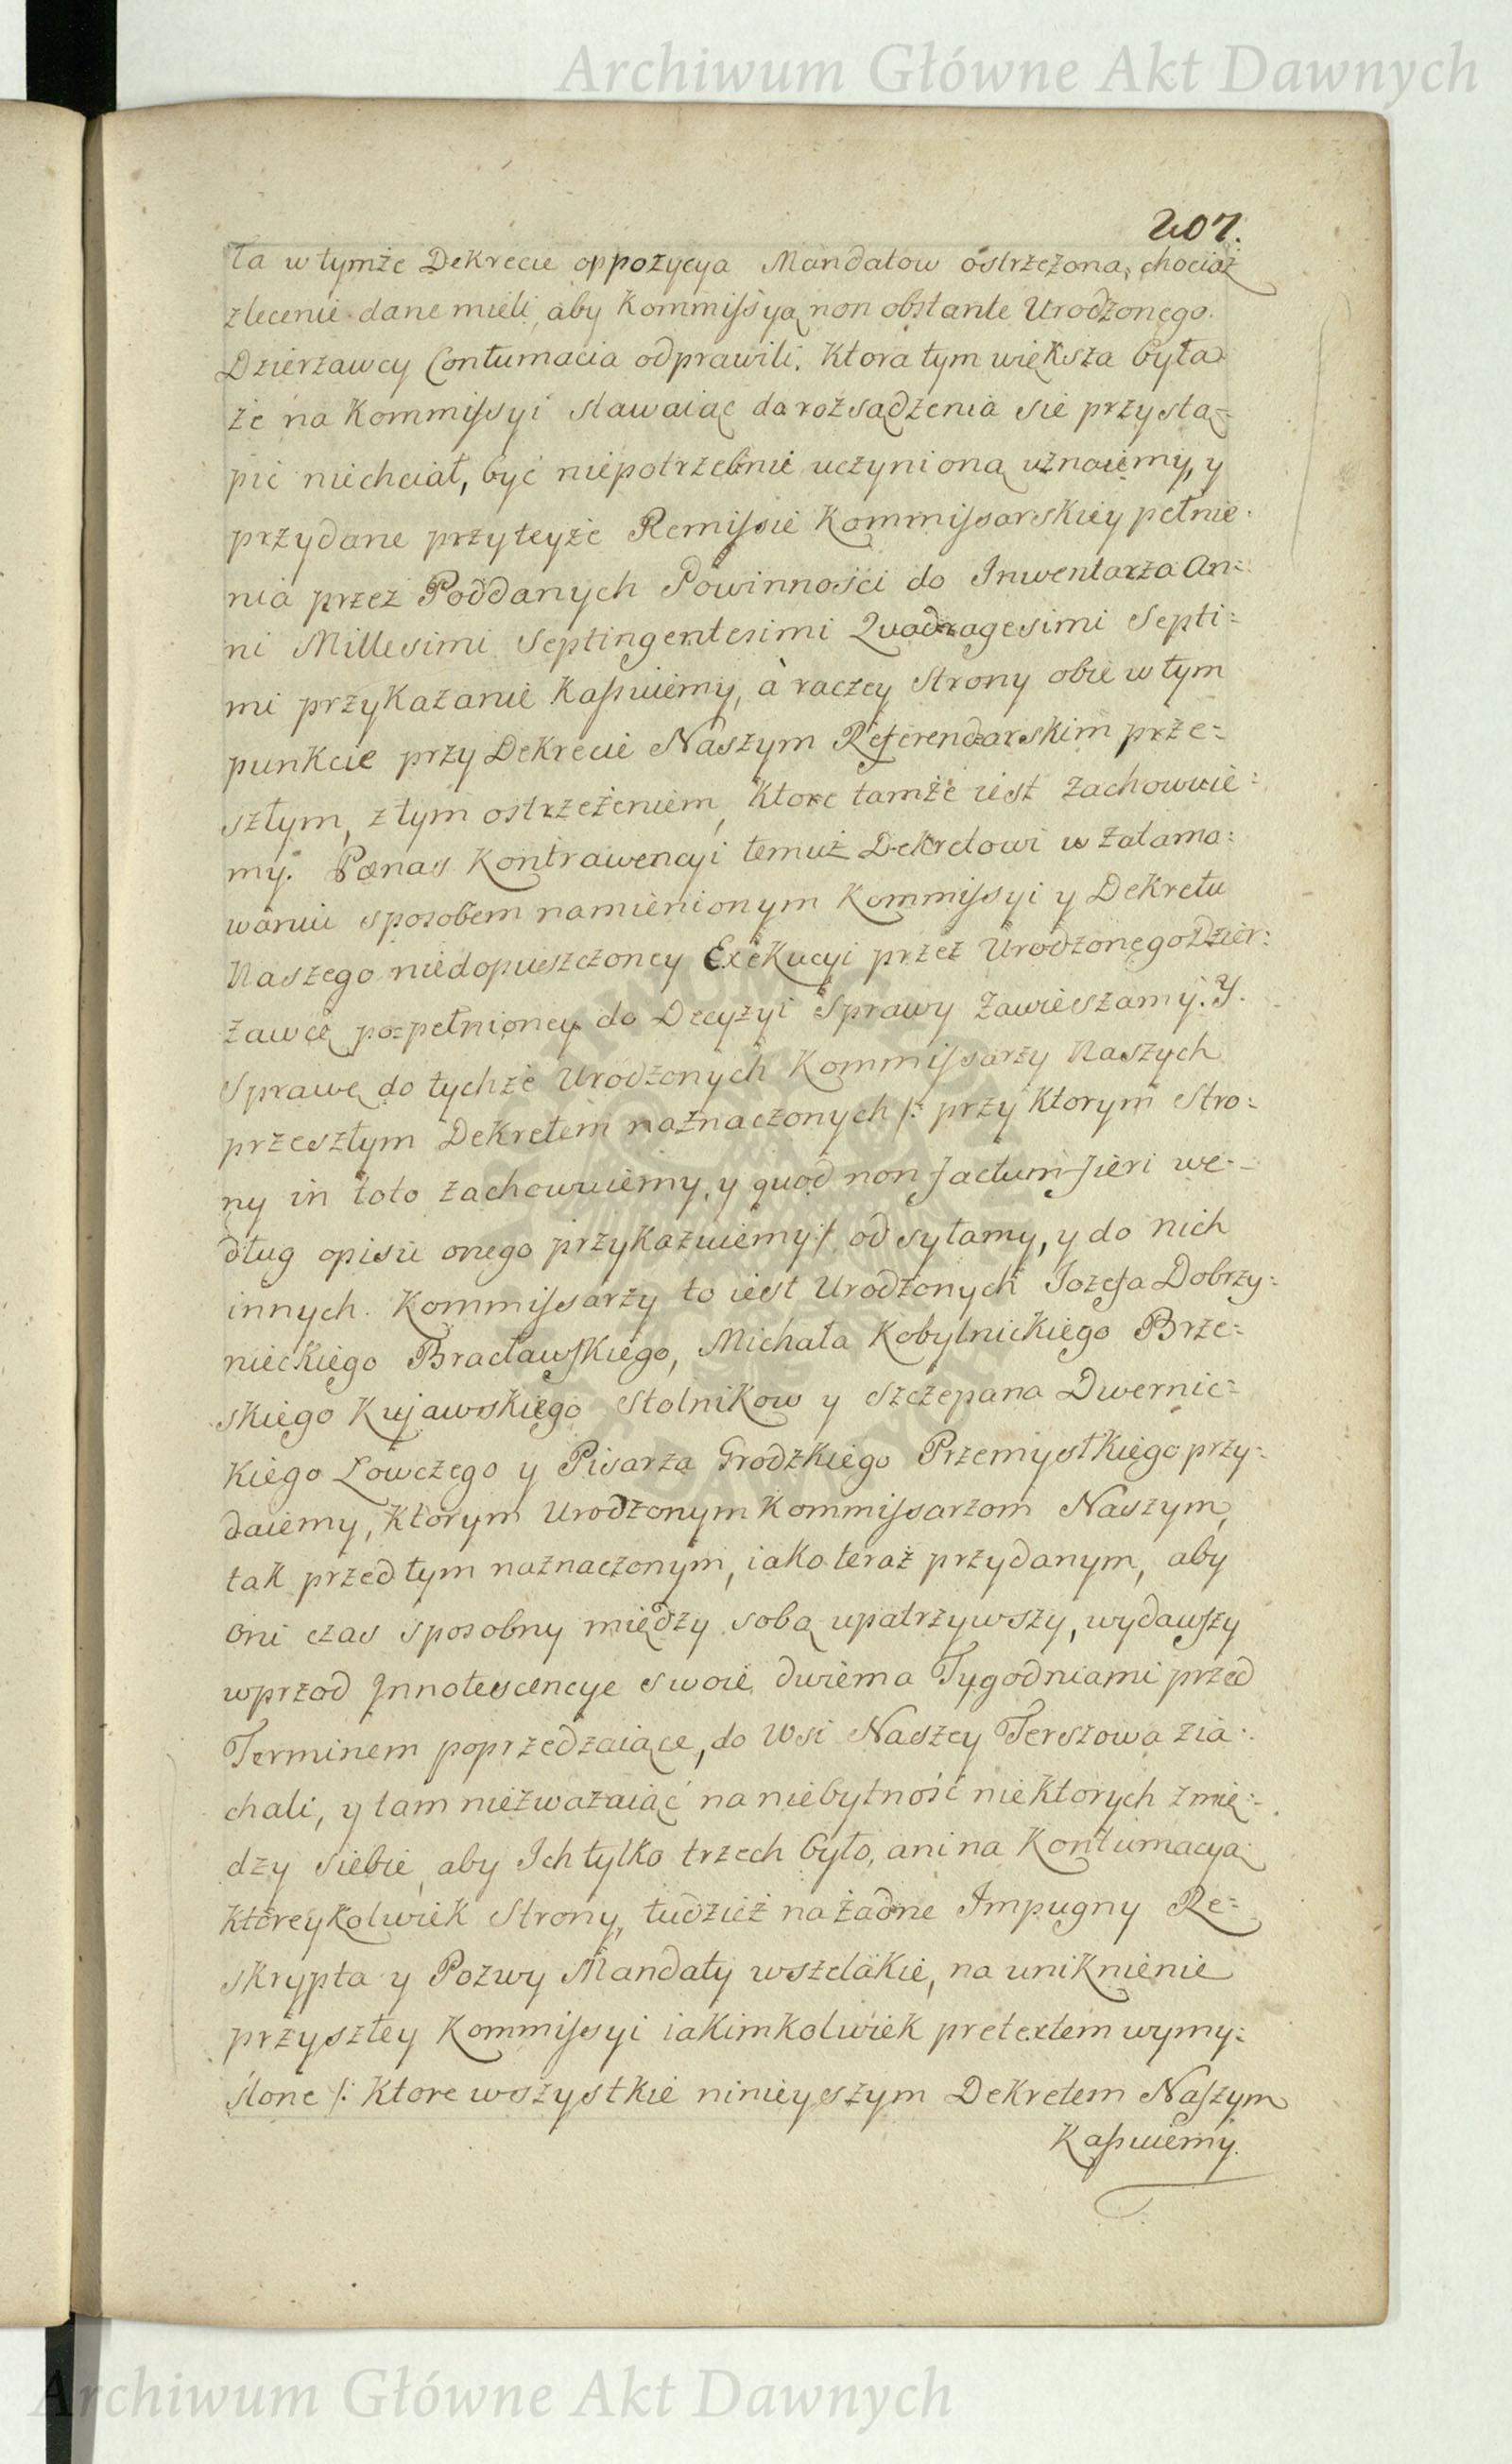 Archiwum Główne Akt Dawnych
207.
ta w tymże Dekrecie oppozycya Mandatow ostrzeżona, chociaż
zlecenie dane mieli, aby Kommissyą non obstante Urodzonego
Dzierżawcy Contumacia odprawili. Ktora tym większa była
że na Kommissyi stawaiąc do rozsądzenia się przystą=
pić niechciał, być niepotrzebnie uczynioną uznaiemy, y
przydane przy teyże Remissie Kommissarskiey pełnie=
nia przez Poddanych Powinności do Inwentarza An=
ni Millesimi Septingentesimi Quadragesimi Septi=
mi przykazanie Kassuiemy, à raczey Strony obie w tym
punkcie przy Dekrecie Naszym Referendarskim prze=
szłym, z tym ostrzeżeniem, Ktore tamże iest zachowuie=
my. Pœnas Kontrawencyi temuż Dekretowi w zatamo=
waniu sposobem namienionym Kommissyi y Dekretu
Naszego niedopuszczoney Exekucyi przez Urodzonego Dzier=
żawcę po=pełnioney do Decyzyi Sprawy zawieszamy. Y
Sprawę do tychże Urodzonych Kommissarzy Naszych
przeszłym Dekretem naznaczonych /: przy Ktorym Stro=
ny in toto zachowuiemy, y quod non factum fieri we=
dług opisu onego przykazuiemy :/ odsyłamy, y do nich
innych Kommissarzy to iest Urodzonych Jozefa Dobrzy=
nieckiego Bracławskiego, Michała Kobylnickiego Brze=
skiego Kujawskiego Stolnikow y Szczepana Dwernic=
kiego Łowczego y Pisarza Grodzkiego Przemyskiego przy=
daiemy, Ktorym Urodzonym Kommissarzom Naszym,
tak przed tym naznaczonym, iako teraz przydanym, aby
oni czas sposobny między sobą upatrzywszy, wydawszy
wprzod Innotescencye swoie dwiema Tygodniami przed
Terminem poprzedzaiące, do Wsi Naszey Terszowa zia=
chali, y tam niezważaiąć na niebytność niektorych z mię=
dzy siebie, aby Ich tylko trzech było, ani na Kontumacyą
Ktoreykolwiek Strony, tudzież na żadne Impugny Re=
skrypta y Pozwy Mandaty wszelakie, na uniknienie
przyszłey Kommissyi iakimkolwiek pretextem wymy=
ślone /: Ktore wszystkie ninieyszym Dekretem Naszym
Kassuiemy.
Archiwum Główne Akt Dawnych